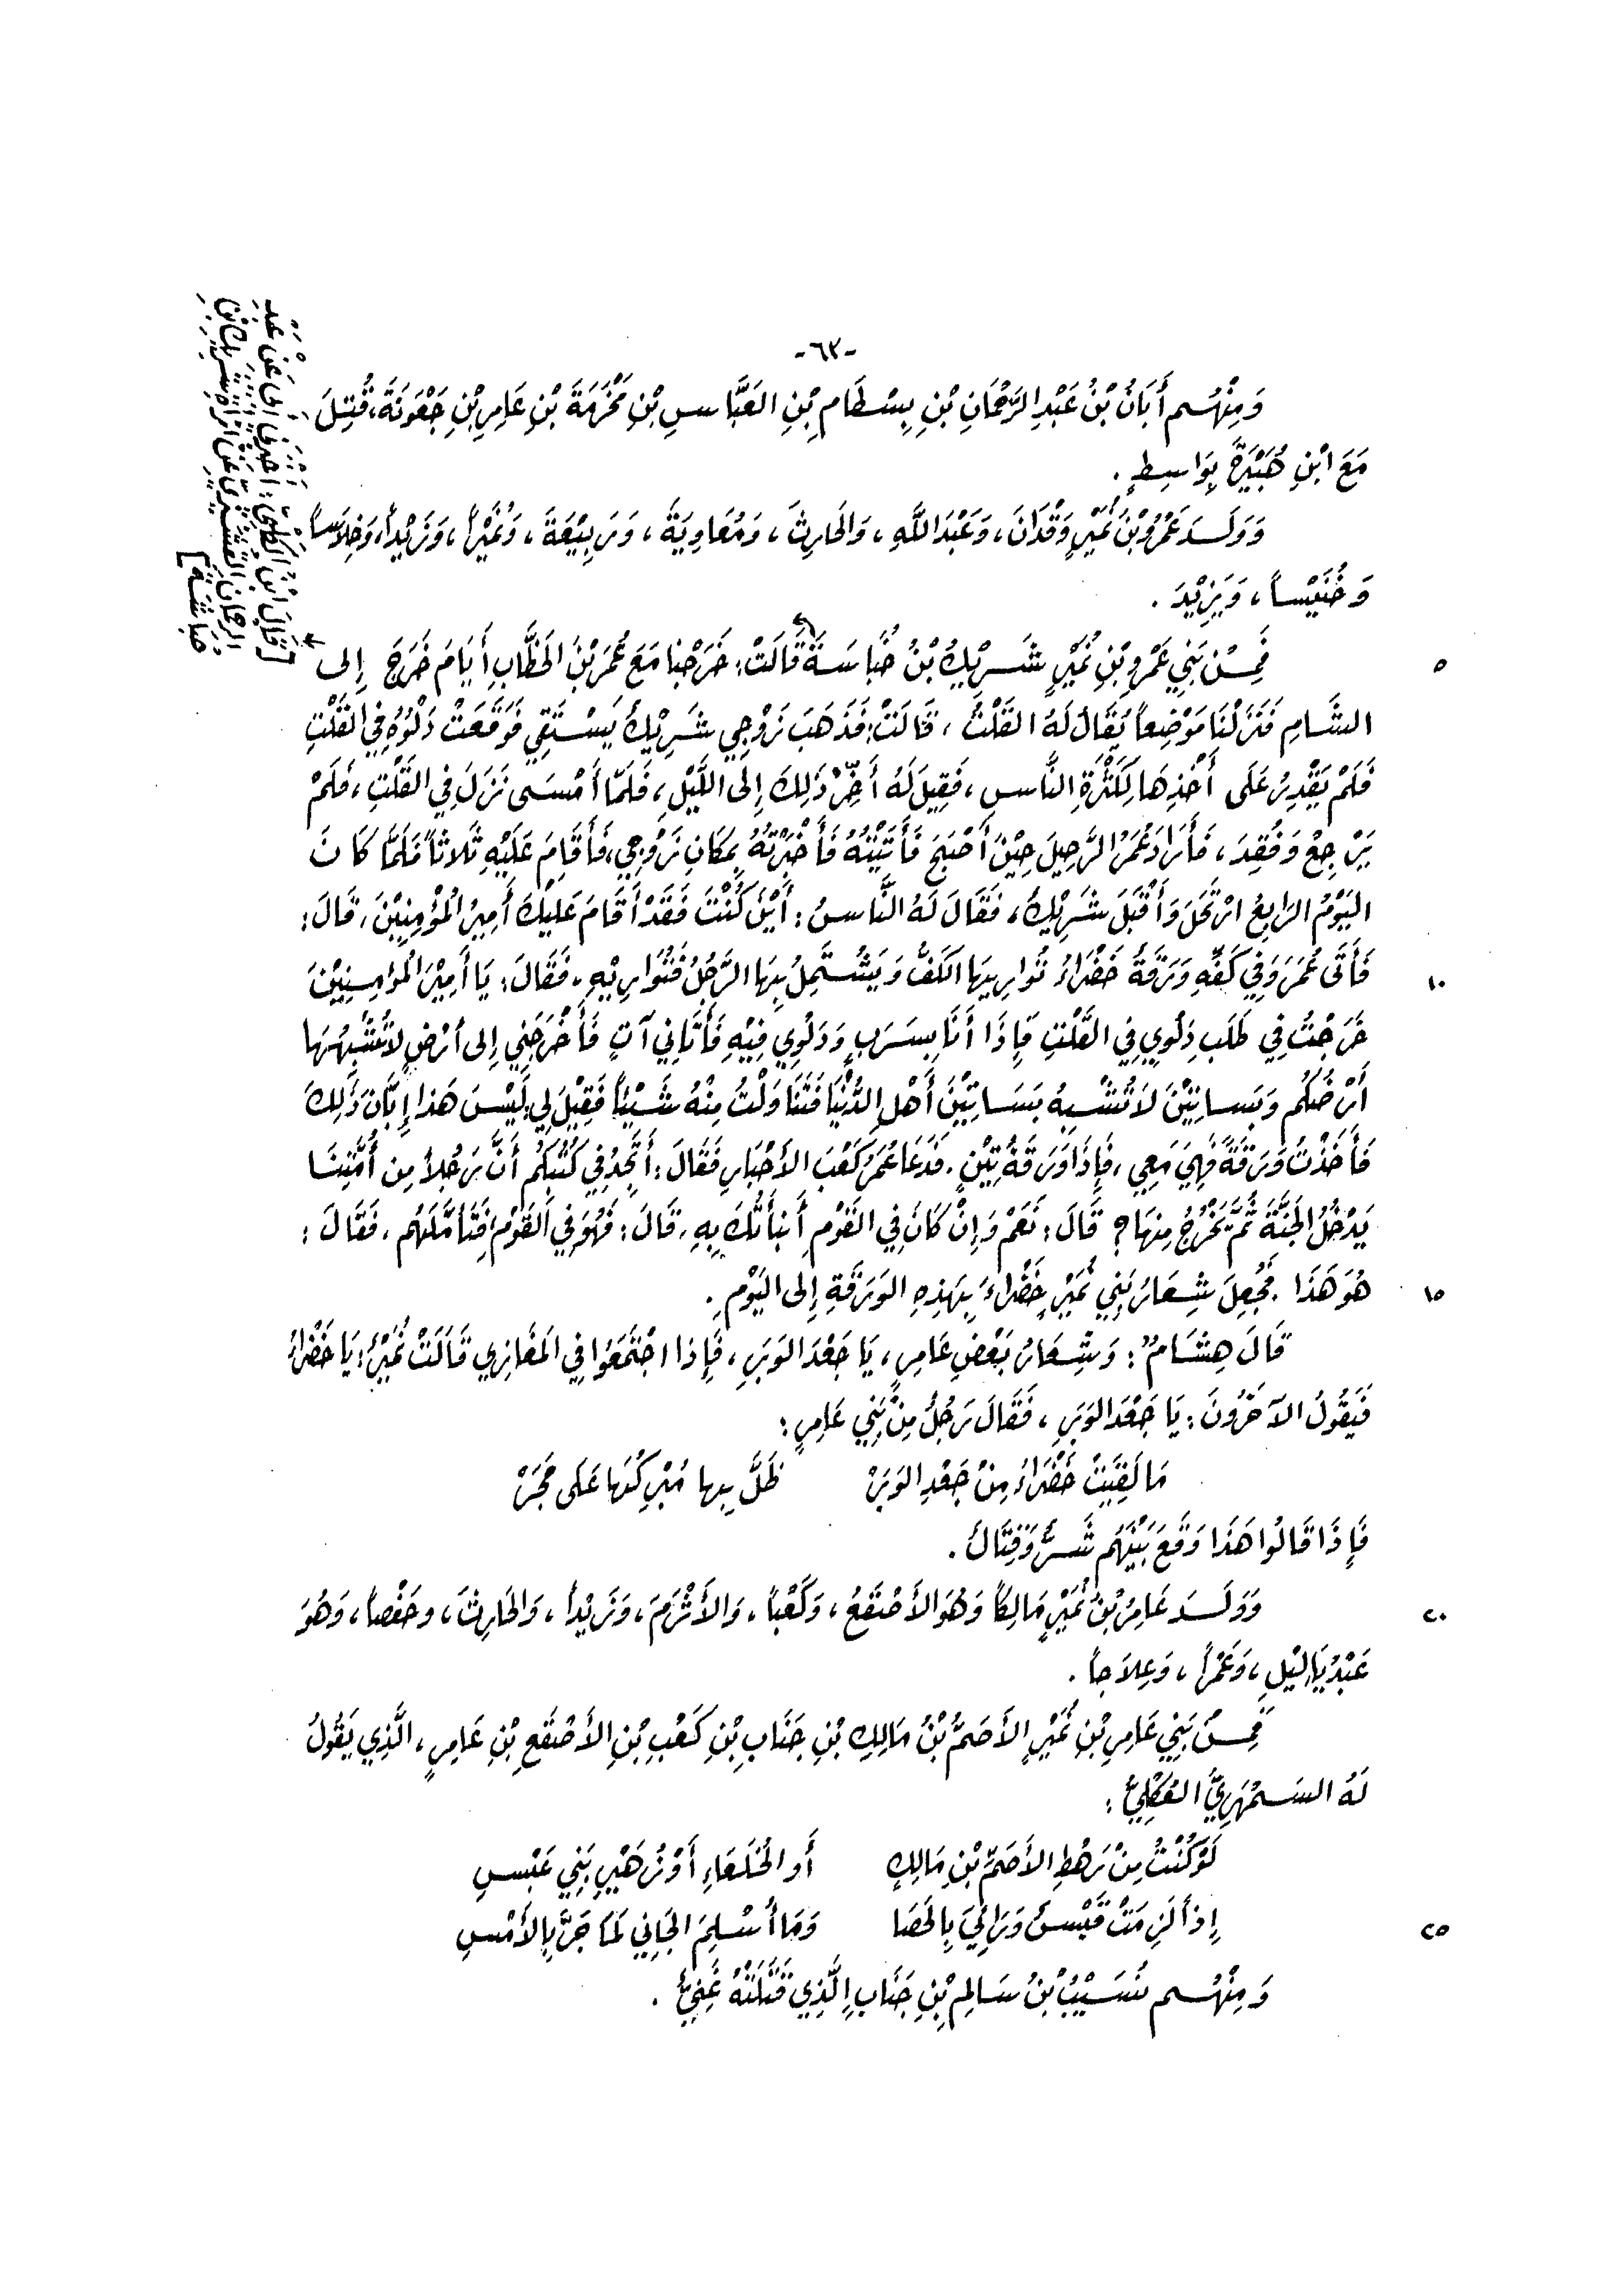 -٦٣-
وَمِنْهُم أَبَانُ بْنُ عَبْدِ الرَّحْمَانِ بْنِ بِسْطَامِ بْنِ العَبَّاسِ بْنِ مَخْرَمَةَ بْنِ عَامِرِ بْنِ جَعْوَنَةَ، قُتِلَ
مَعَ ابْنِ هُبَيْرَةَ بِوَاسِطٍ .
وَوَلَدَ عَمْرُو بْنُ نُمَيْرٍ وَقْدَانَ، وَعَبْدَ اللَّهِ، وَالحَارِثَ، وَمُعَاوِيَةَ، وَرَبِيْعَةَ، وَنُمَيْرَاً، وَزَيْداً، وَخِلَاساً
وَخُنَيْساً، وَيَزِيْدَ .
٥ فَمِنْ بَنِي عَمْرِو بْنِ نُمَيْرٍ شَرِيْكُ بْنُ خُبَاسَةَ قَالَتْ: خَرَجْنَا مَعَ عُمَرَ بْنِ الخَطَّابِ أَيَامَ خَرَجَ إِلى
الشَّامِ فَنَزَلْنَا مَوْضِعاً يُقَالُ لَهُ القَلْتُ، قَالَتْ: فَذَهَبَ زَوْجِي شَرِيْكُ يَسْتَقِي فَوَقَعَتْ دَلْوُهُ فِي القَلْتِ
فَلَمْ يَقْدِرْ عَلَى أَخْذِهَا لِكَثْرَةِ النَّاسِ، فَقِيلَ لَهُ أَخِّرْ ذَلِكَ إِلى اللَّيْلِ، فَلَمّا أَمْسَى نَزَلَ فِي القَلْتِ، فَلَمْ
يَرْجِعْ وَفُقِدَ، فَأَرَادَ عُمَرُ الرَّحِيلَ حِيْنَ أَصْبَحَ فَأَتَيْتُهُ فَأَخْبَرْتُهُ بِمَكَانِ زَوْجِي، فَأَقَامَ عَلَيْهِ ثَلاثاً فَلَمَّا كَانَ
اليَوْمُ الرَابِعُ ارْتَحَلَ وَأَقْبَلَ شَرِيْكُ، فَقَالَ لَهُ النَّاسُ: أَيْنَ كُنْتَ فَقَدْ أَقَامَ عَلَيْكَ أَمِيرُ المُؤْمِنِيْنَ، قَالَ:
١٠ فَأَتَى عُمَرَ وَفِي كَفِّهِ وَرَقَةٌ خَضْرَاءُ تُوَارِيهَا الكَفُّ وَيَشْتَمِلُ بِهَا الرَّجُلُ فَتُوَارِيْهِ، فَقَالَ: يَا أَمِيْرَ المُؤْمِنِيْنَ
خَرَجْتُ فِي طَلَبِ دَلْوِي فِي القَلْتِ فَإِذَا أَنَا بِسَرَبٍ وَدَلْوِي فِيْهِ فَأَتَانِي آتٍ فَأَخْرَجَنِي إِلى أَرْضٍ لَا تُشْبِهُهَا
أَرْضُكُم وَبَسَاتِيْنَ لَا تُشْبِهُ بَسَاتِيْنَ أَهْلِ الدُّنْيَا فَتَنَاوَلْتُ مِنْهُ شَيْئاً فَقِيْلَ لِي: لَيْسَ هَذا إِبَّانَ ذَلِكَ
فَأَخَذْتُ وَرَقَةً فَهِيَ مَعِي، فَإِذَا وَرَقَةُ تِيْنٍ. فَدَعَا عُمَرُ كَعْبَ الأَحْبَارِ فَقَالَ: أَتَجِدُ فِي كُتُبِكُم أَنَّ رَجُلاً مِن أُمَّتِنَا
يَدْخُلُ الجَنَّةَ ثُمَّ يَخْرُجُ مِنهَا؟ قَالَ: نَعَمْ وَإِنْ كَانَ فِي القَوْمِ أَنبَأْتُكَ بِهِ، قَالَ: فَهُوَ فِي القَوْمِ، فَتَأَمَّلَهُم، فَقَالَ :
١٥ هُوَ هَذَا . فَجُعِلَ شِعَارُ بَنِي نُمَيْرٍ خَضْرَاءَ بِهَذِهِ الوَرَقَةِ إِلى اليَوْمِ .
قَالَ هِشَامٌ: وَشِعَارُ بَعْضِ عَامِرٍ، يَا جَعْدَ الوَبَرِ، فَإِذا اجْتَمَعُوا فِي المَغَازِي قَالَتْ نُمَيْرُ: يَا خَضْرَاءُ
فَيَقُولُ الآخَرُونَ: يَا جَعْدَ الوَبَرِ، فَقَالَ رَجُلٌ مِنْ بَنِي عَامِرٍ:
مَا لَقِيَتْ خَضْرَاءُ مِنْ جَعْدِ الوَبَرْ ظَلَّ بِهَا مُبْرِكُهَا عَلَى حَجَرْ
فَإِذَا قَالُوا هَذَا وَقَعَ بَيْنَهُم شَرٌّ وَقِتَالٌ .
٢٠ وَوَلَدَ عَامِرُ بْنُ نُمَيْرٍ مَالِكاً وَهُوَ الأَصْقَعُ، وَكَعْباً، وَالأَثْرَمَ، وَزَيْداً، وَالحَارِثَ، وَحَفْصاً، وَهُوَ
عَبْدُ يَالِيْلِ، وَعَمْراً، وَعِلَاجاً .
فَمِنْ بَنِي عَامِرِ بْنِ نُمَيْرٍ الأَصَمُّ بْنُ مَالِكِ بْنِ جَنَابِ بْنِ كَعْبِ بْنِ الأَصْقَعِ بْنِ عَامِرٍ، الَّذِي يَقُولُ
لَهُ السَمْهَرِيُّ العُكْلِيُّ :
لَوَكُنْتُ مِنْ رَهْطِ الأَصَمِّ بْنِ مَالِكٍ أَو الخُلَعَاءِ أَوْ زُهَيْرِ بَنِي عَبْسِ
٢٥ إِذاً لَرَمَتْ قَيْسُ وَرَائِيَ بِالحَصَا وَمَا أُسْلِمَ الجَانِي لَمَا جَرَّ بِالأَمْسِ
وَمِنْهُم شَبِيْبُ بْنُ سَالِمِ بْنِ جَنَابِ الَّذِي قَتَلَتْهُ غَنِيُّ .
[قَالَ ابْنُ الكَلْبِيّ: أَخْبَرَنِي أَبِي عَنْ عَبْدِ
الرحمانِ القُشَيْرِيّ عَنْ امْرَأَةِ شَرِيْكِ بْنِ
خُبَاشَةَ]